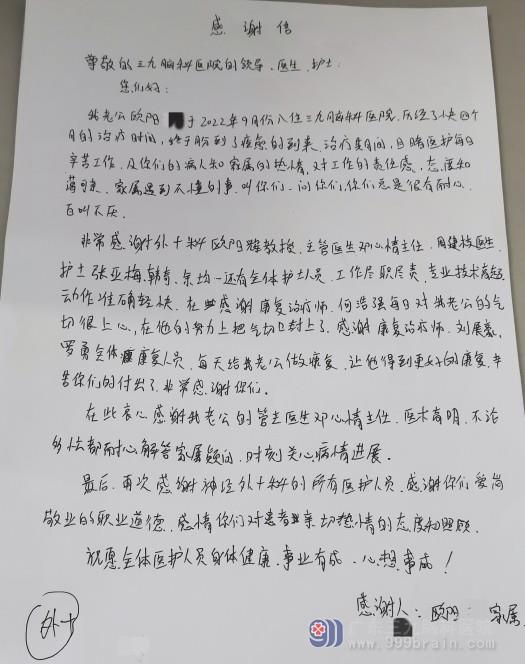 感谢信
尊敬的三九脑科医院的领导、医生、护士:
您们好:
我老公欧阳 于2022年9月份入住三九脑科医院,历经了快四个
月的治疗时间,终于盼到了痊愈的到来,治疗期间,目睹医护每日
辛苦工作,及你们的病人和家属的热情,对工作的责任感,态度和
蔼可亲,家属遇到不懂的事,叫你们,问你们,你们总是很有耐心,
百叫不厌。
非常感谢外十科欧阳辉教授,主管医生邓心情主任,周建校医生,
护士张亚梅,韩奇,余均一还有全体护士人员,工作尽职尽责,专业技术
动作准确轻快,在此感谢康复治疗师,何浩强每日对我老公的气
切很上心,在他的努力上把气切口封上了,感谢康复治疗师,刘展豪,
罗勇全体康复人员,每天给我老公做康复,让他得到更好的康复,辛
苦你们的付出了,非常感谢你们。
在此衷心感谢我老公的管主医生邓心情主任,医术高明,不论
多忙都耐心解答家属疑问,时刻关心病情进展。
最后,再次感谢神经外十科的所有医护人员,感谢你们爱岗
敬业的职业道德,感情你们对患者亲切热情的态度和照顾,
祝愿全体医护人员身体健康,事业有成,心想事成!
感谢人:欧阳 家属
外十
www.999brain.com